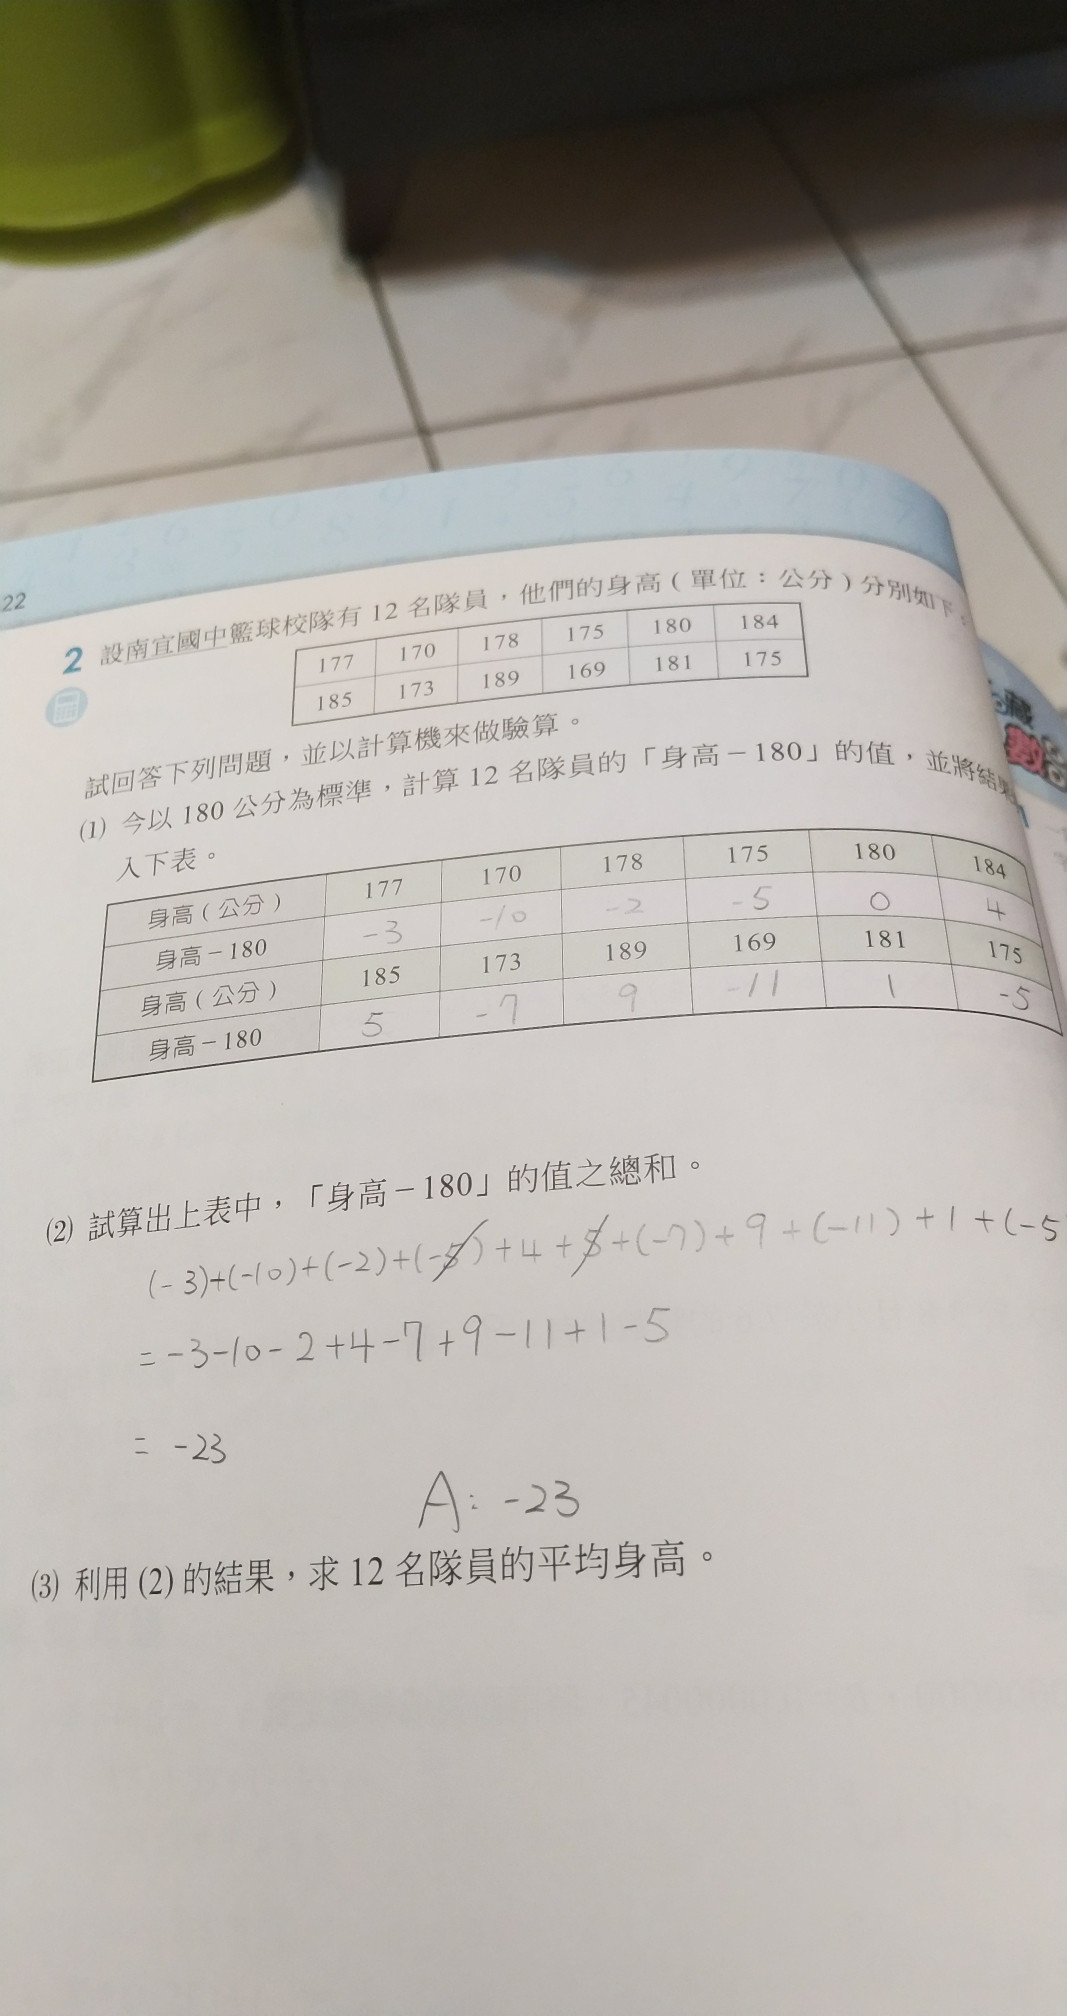 22
2 設南宜國中籃球校隊有 12 名隊員，他們的身高（單位：公分）分別如下：
177 170 178 175 180 184
185 173 189 169 181 175
試回答下列問題，並以計算機來做驗算。
(1) 今以 180 公分為標準，計算 12 名隊員的「身高－180」的值，並將結果
入下表。
身高（公分） 177 170 178 175 180 184
身高－180 -3 -10 -2 -5 0 4
身高（公分） 185 173 189 169 181 175
身高－180 5 -7 9 -11 1 -5
(2) 試算出上表中，「身高－180」的值之總和。
(-3)+(-10)+(-2)+(-5)+4+5+(-7)+9+(-11)+1+(-5
=-3-10-2+4-7+9-11+1-5
= -23
A: -23
(3) 利用 (2) 的結果，求 12 名隊員的平均身高。